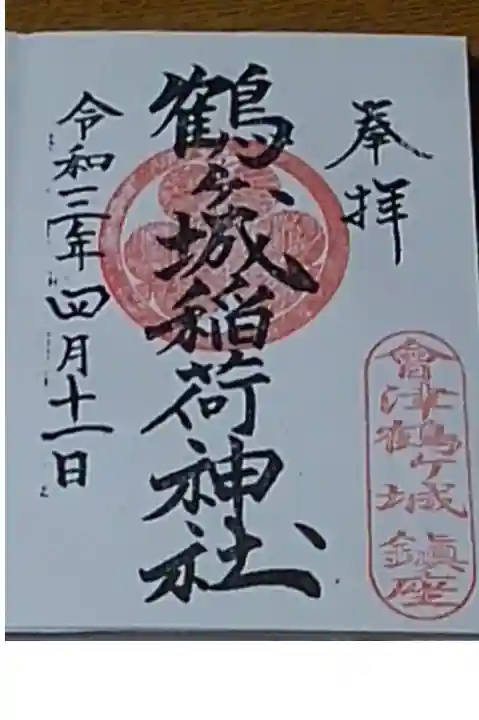 奉拝
會津鶴ケ城鎮座
鶴ヶ城稲荷神社
令和三年四月十一日